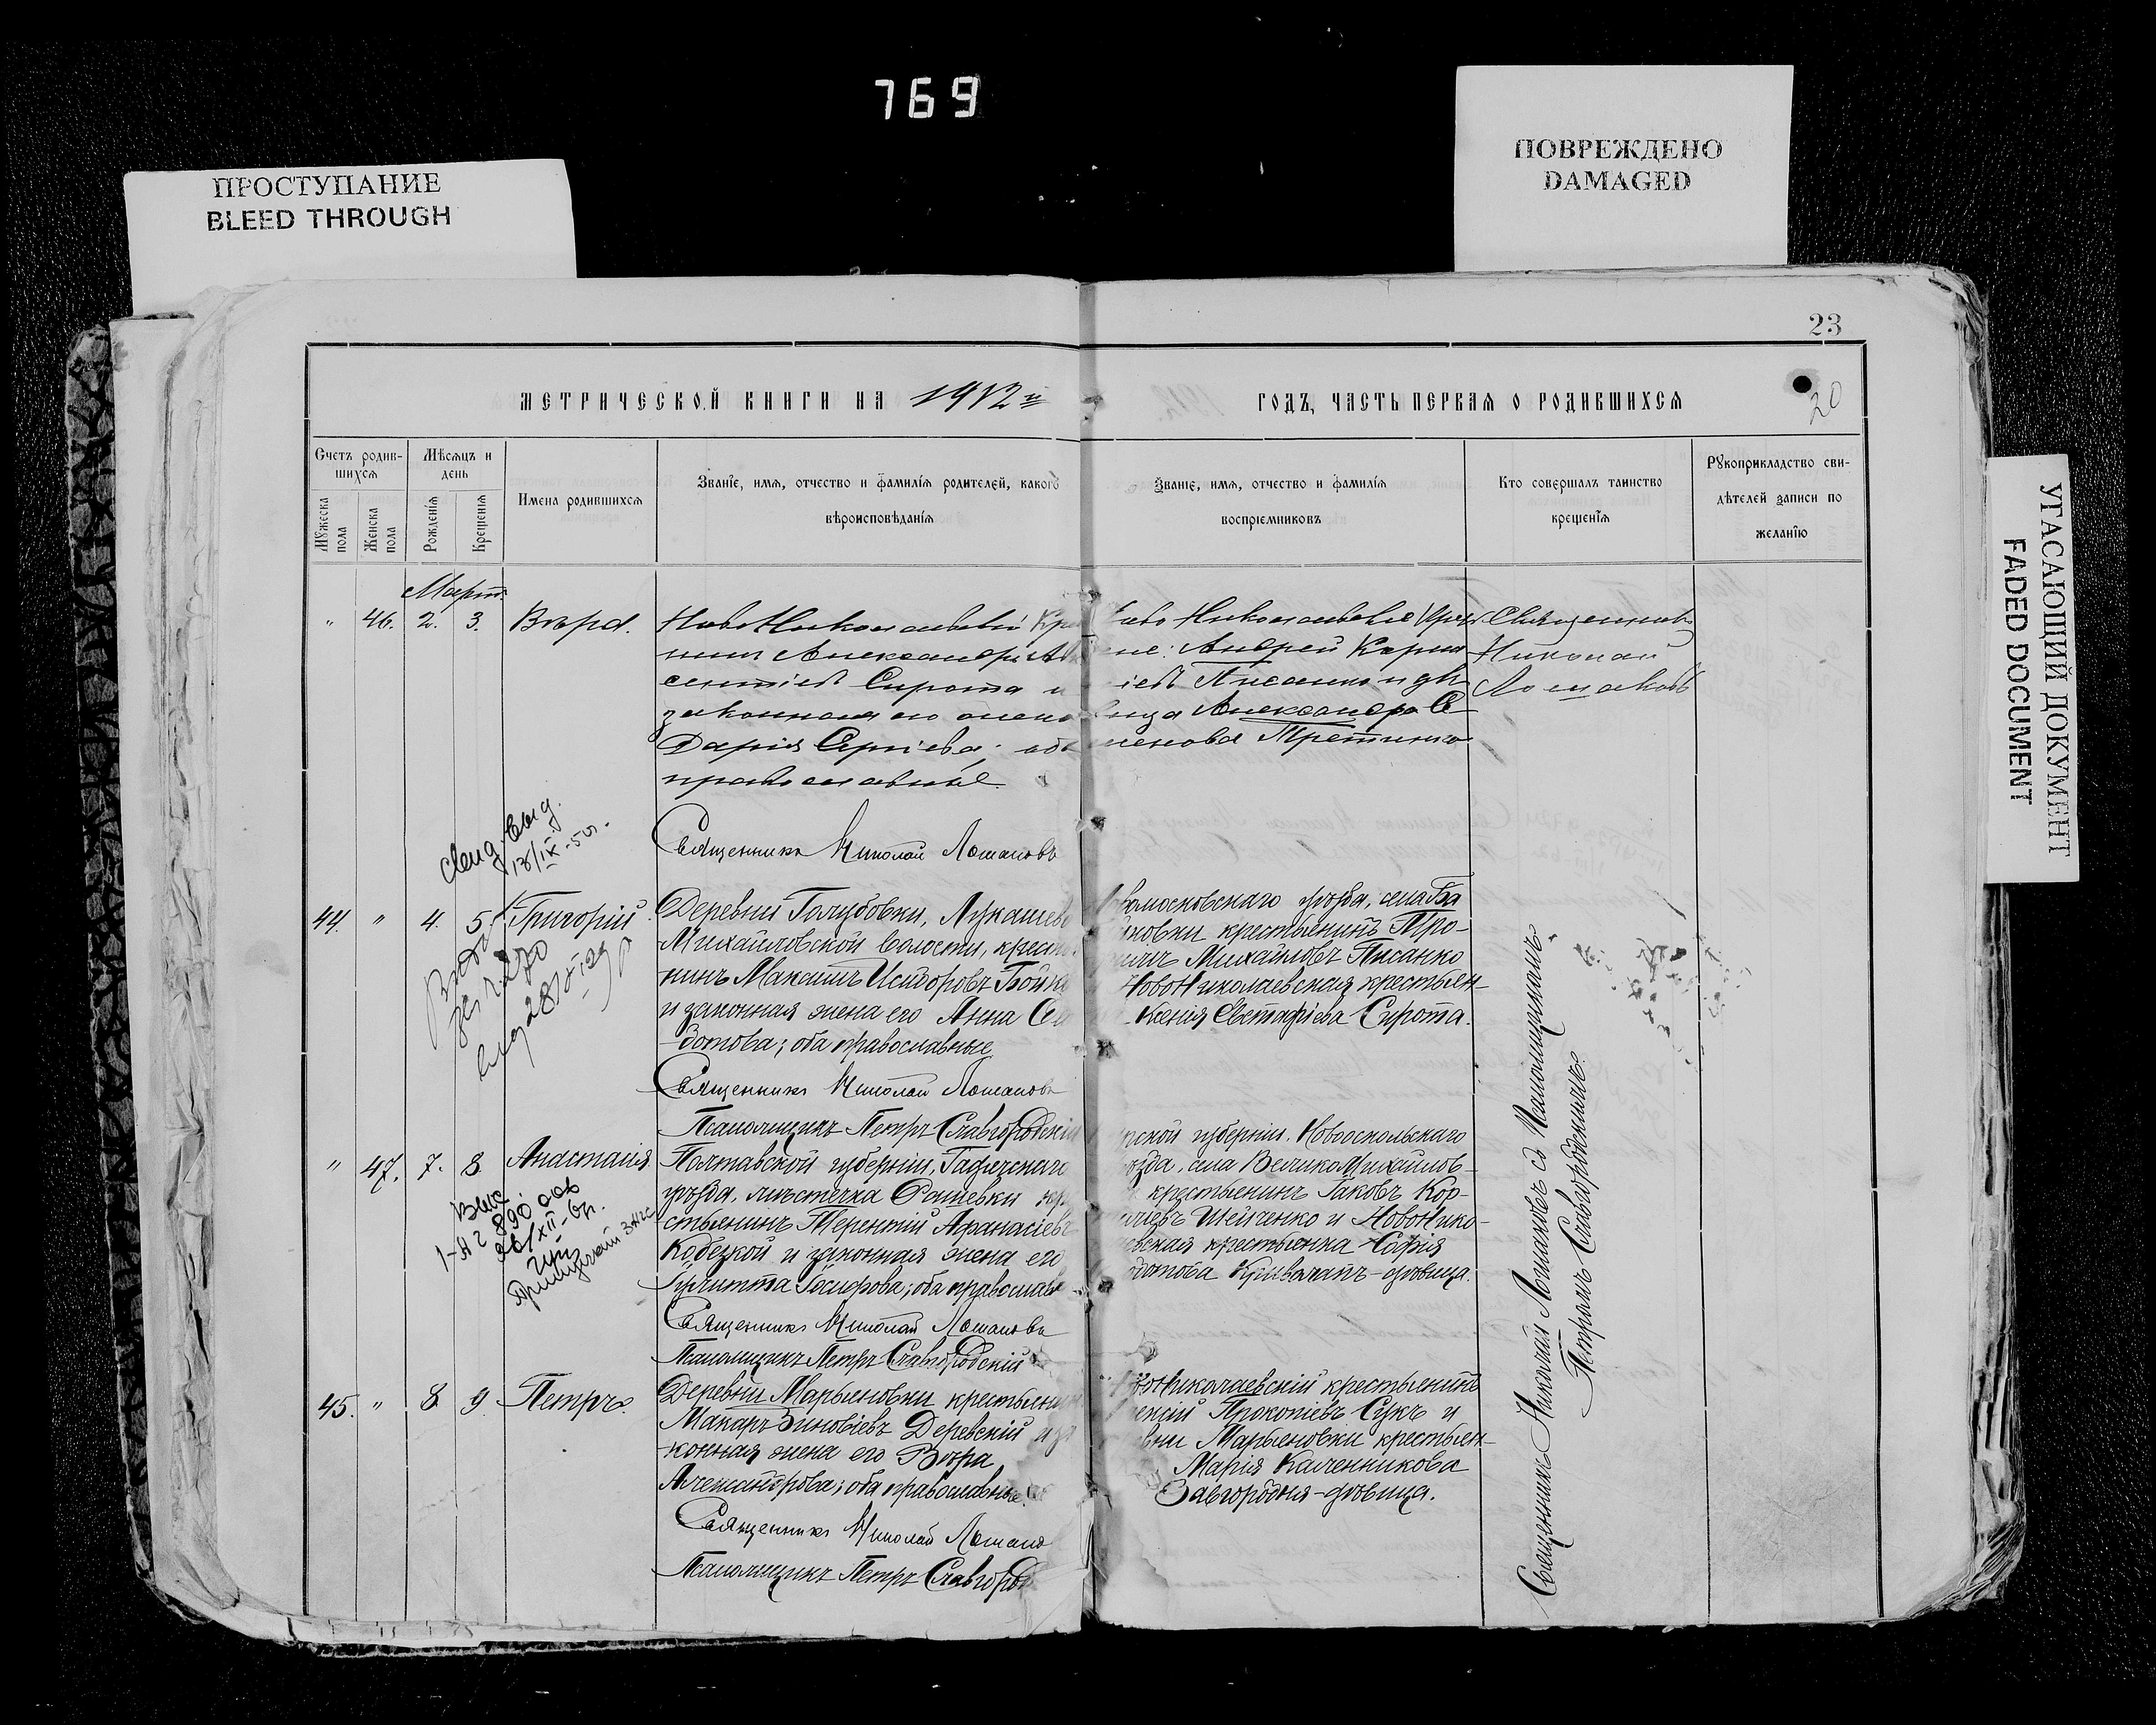 769
ПРОСТУПАНИЕ
BLEED THROUGH
ПОВРЕЖДЕНО
DAMAGED
УГАСАЮЩИЙ ДОКУМЕНТ
FADED DOCUMENT
23
20
МЕТРИЧЕСКОЙ КНИГИ НА 1912й
ГОДЪ, ЧАСТЬ ПЕРВАЯ О РОДИВШИХСЯ
Счетъ родив-
шихся
Мужеска пола
Женска пола
Мѣсяцъ и
день
Рожденія
Крещенія
Имена родившихся
Званіе, имя, отчество и фамилія родителей, какого
вѣроисповѣданія
Званіе, имя, отчество и фамилія
воспріемниковъ
Кто совершалъ таинство
крещенія
Рукоприкладство сви-
дѣтелей записи по
желанію
Мартъ
" 46. 2. 3. Вѣра.
Ново Николаевскій Кре
нинъ Александръ Ав
сентіевъ Сирота и
законная его жена
Дарія Сергіева; оба
православные
Священникъ Николай Лошаковъ
Ново Николаевскіе Кресть
не: Андрей Карпо
Писанко и дѣ
вица Александра Се
менова Третинко
Священникъ
Николай
Лошаковъ
13/IX-50
44. " 4. 5. Григорій.
Деревни Голубовки, Лукашево
Михайловской волости, кресть
нинъ Максимъ Исидоровъ Бойко
и законная жена его Анна
дотова; оба православные
Священникъ Николай Лошаковъ
Псаломщикъ Петръ Славгородскій
вомосковскаго уѣзда, села Ба
новки крестьянинъ Тро-
Михайловъ Писанко
НовоНиколаевская крестьян-
Ксенія Евстафіева Сирота.
28/XI 29
" 47. 7. 8. Анастасія.
Полтавской губерніи, Гадячскаго
уѣзда, мѣстечка Рашевки кр
стьянинъ Терентій Афанасіевъ
Кобецкой и законная жена его
Іулитта Іосифова; оба православ
Священникъ Николай Лошаковъ
Псаломщикъ Петръ Славгородскій
рской губерніи, Новооскольскаго
уѣзда, села ВеликоМихайлов-
крестьянинъ Іаковъ Кор-
иліевъ Шейченко и НовоНико-
евская крестьянка София
дотова Кривочапъ - дѣвица.
26/XII-
45. " 8. 9. Петръ.
Деревни Марьяновки крестьянин
Макаръ Зиновіевъ Деревскій и за
конная жена его Вѣра
Александрова; оба православные.
Священникъ Николай Лошако
Псаломщикъ Петръ Славгород
НовоНиколаевскій крестьянинъ
Прокопіевъ Сукъ и
вни Марьяновки крестьян-
Марія Каленникова
Завгородня - дѣвица.
Священникъ Николай Лошаковъ съ Псаломщикомъ
Петромъ Славгородскимъ.